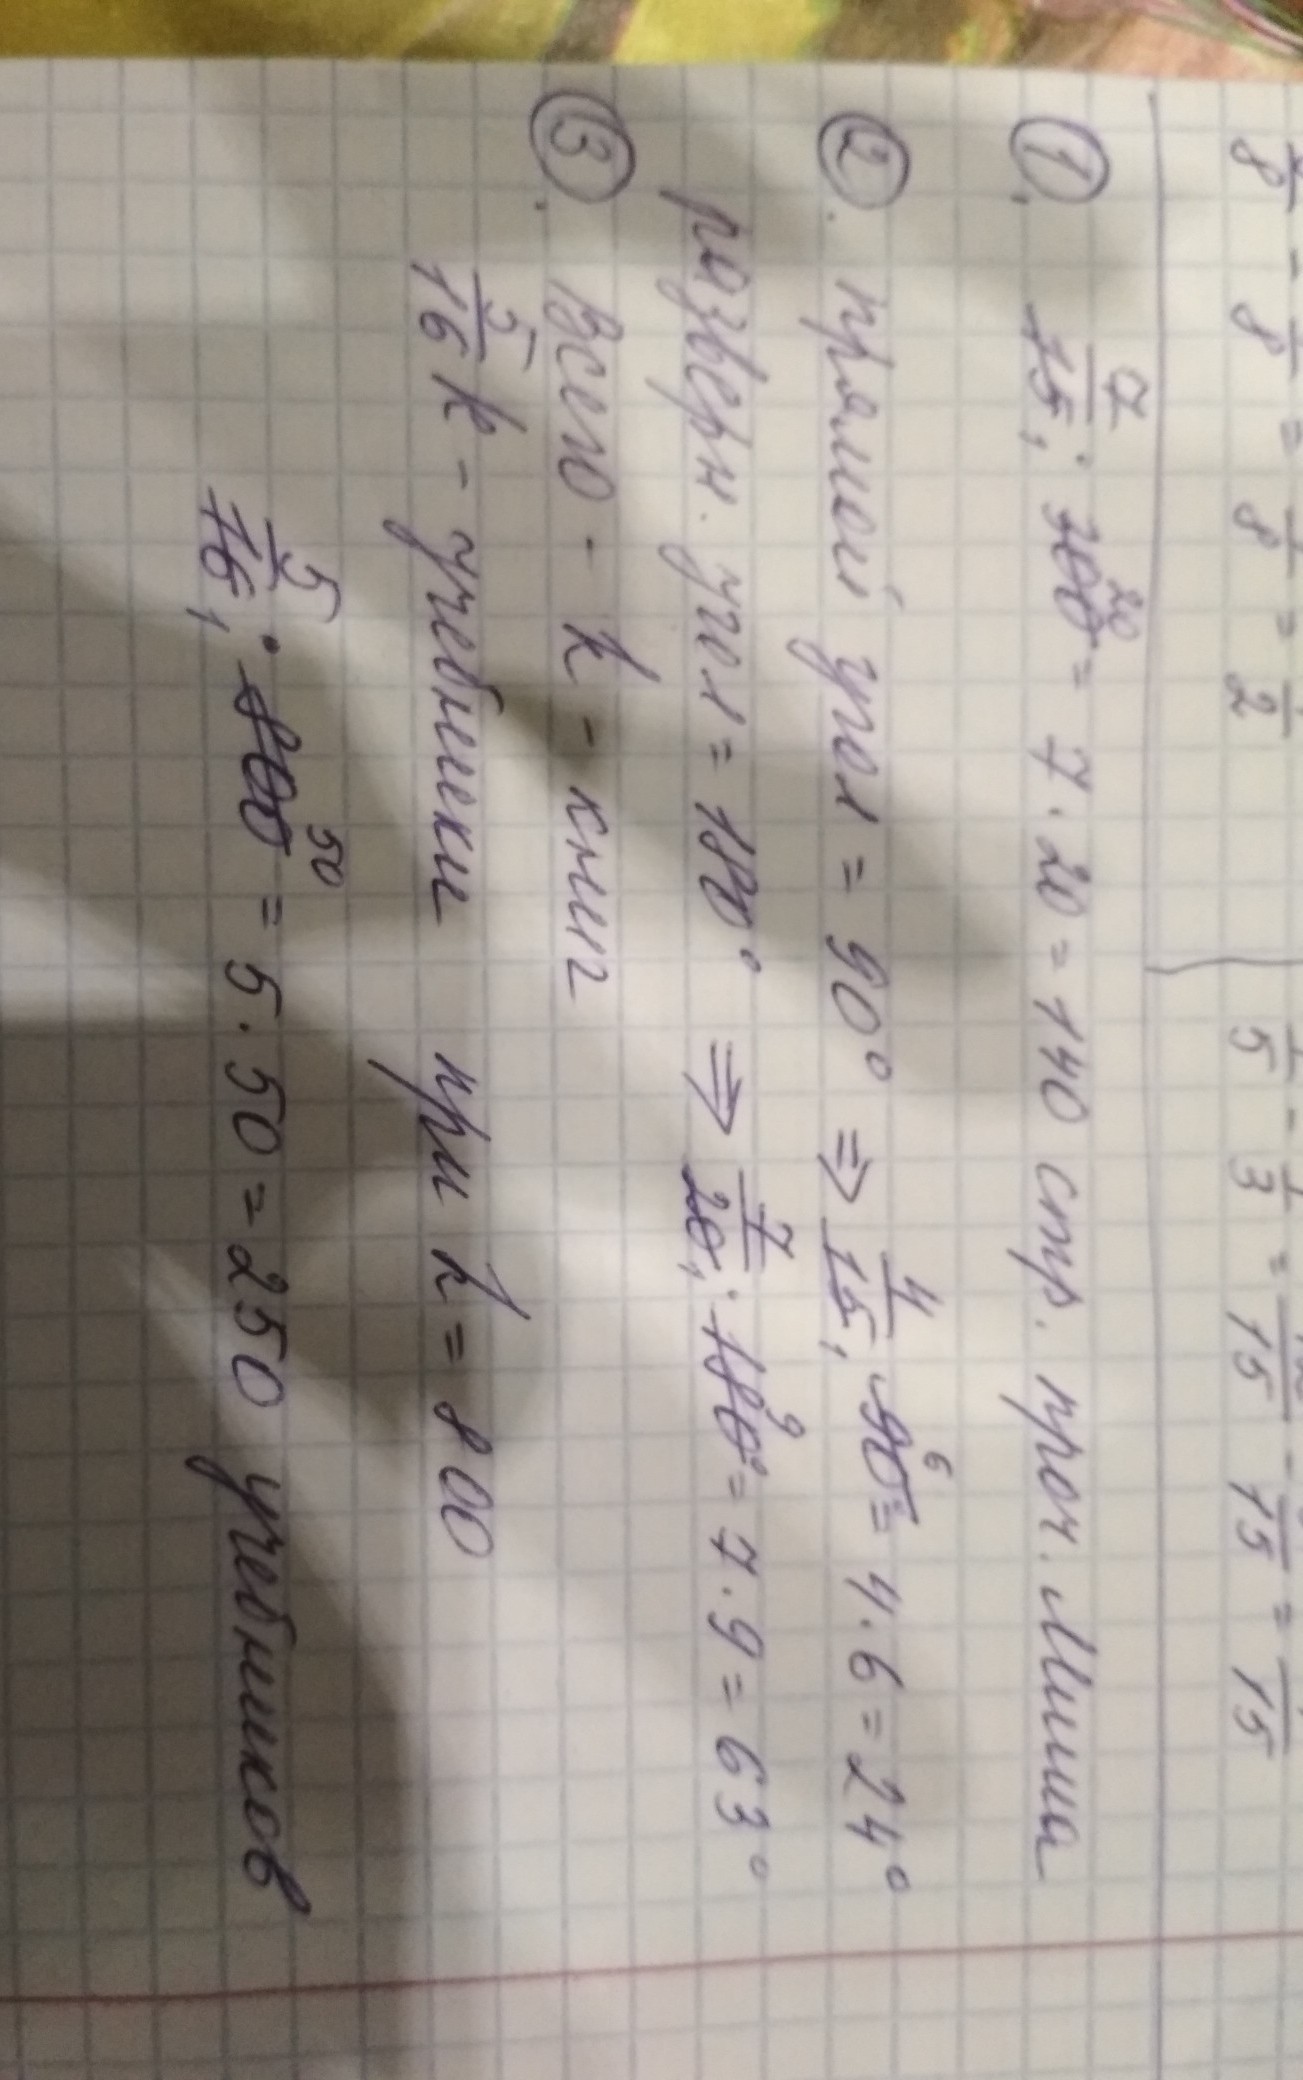 8 - 8 = 8 = 1/2
1/5 - 1/3 = /15 - /15 = /15
① 7/15 · 300 20 = 7 · 20 = 140 стр. проч. Миша
②. прямой угол = 90° ⇒ 4/15 · 90 6 = 4 · 6 = 24°
разверн. угол = 180° ⇒ 7/20 · 180° 9 = 7 · 9 = 63°
③. Всего - k - книг
5/16 k - учебники при k = 800
5/16 · 800 50 = 5 · 50 = 250 учебников